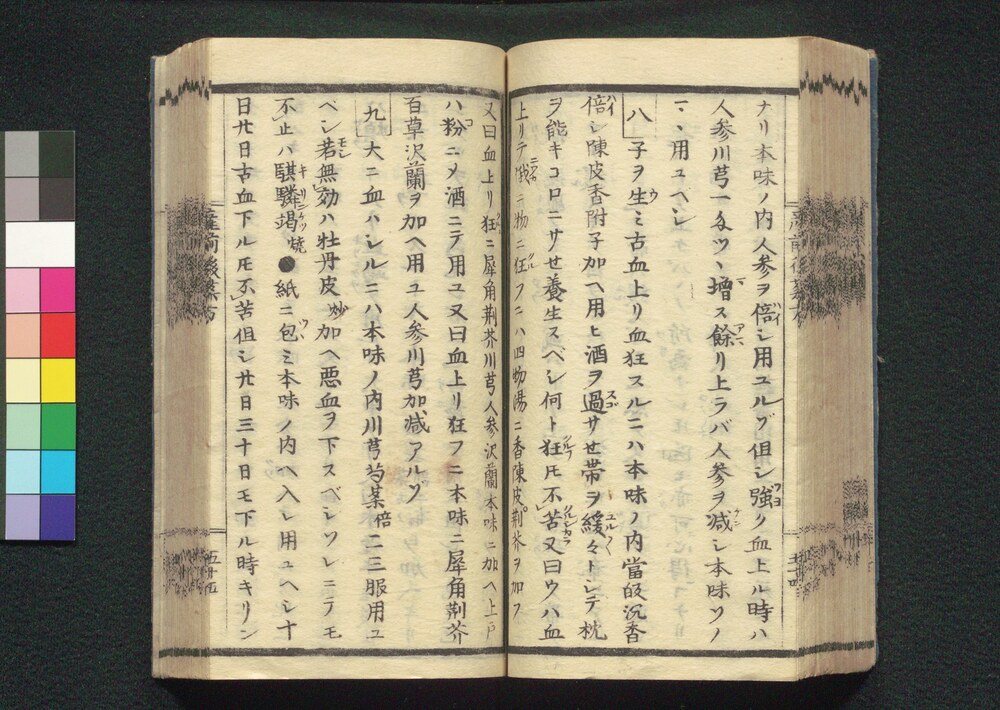 ナリ本味ノ内人参ヲ倍シ用ユルヿ但シ強ク血上ル時ハ
人参川芎一匁ツヽ増ス餘リ上ラバ人参ヲ減シ本味ツノ
マヽ用ユヘシ
八 子ヲ生ミ古血上リ血狂スルニハ本味ノ内當皈沉香
倍シ陳皮香附子加ヘ用ヒ酒ヲ過サせ帯ヲ緩々トシテ枕
ヲ能キコロニサせ養生スベシ何ト狂トモ不苦又曰ウハ血
上リテ俄ニ物ニ狂フニハ四物湯ニ香陳皮荆芥ヲ加フ
又曰血上リ狂ニ犀角荆芥川芎人参沢蘭本味ニ加ヘ上戸
ハ粉ニメ酒ニテ用ユ又曰血上リ狂フニ本味ニ犀角荆芥
百草沢蘭ヲ加ヘ用ユ人参川芎加减アルヿ
九 大ニ血ハシルニハ本味ノ内川芎芍薬倍二三服用ユ
ベシ若無効ハ牡丹皮炒加ヘ悪血ヲ下スベシソレニテモ
不止ハ騏驎竭焼●紙ニ包ミ本味ノ内ヘ入レ用ユヘシ十
日廿日古血下ルトモ不苦但シ廿日三十日モ下ル時キリン
産前後藥方
五十五